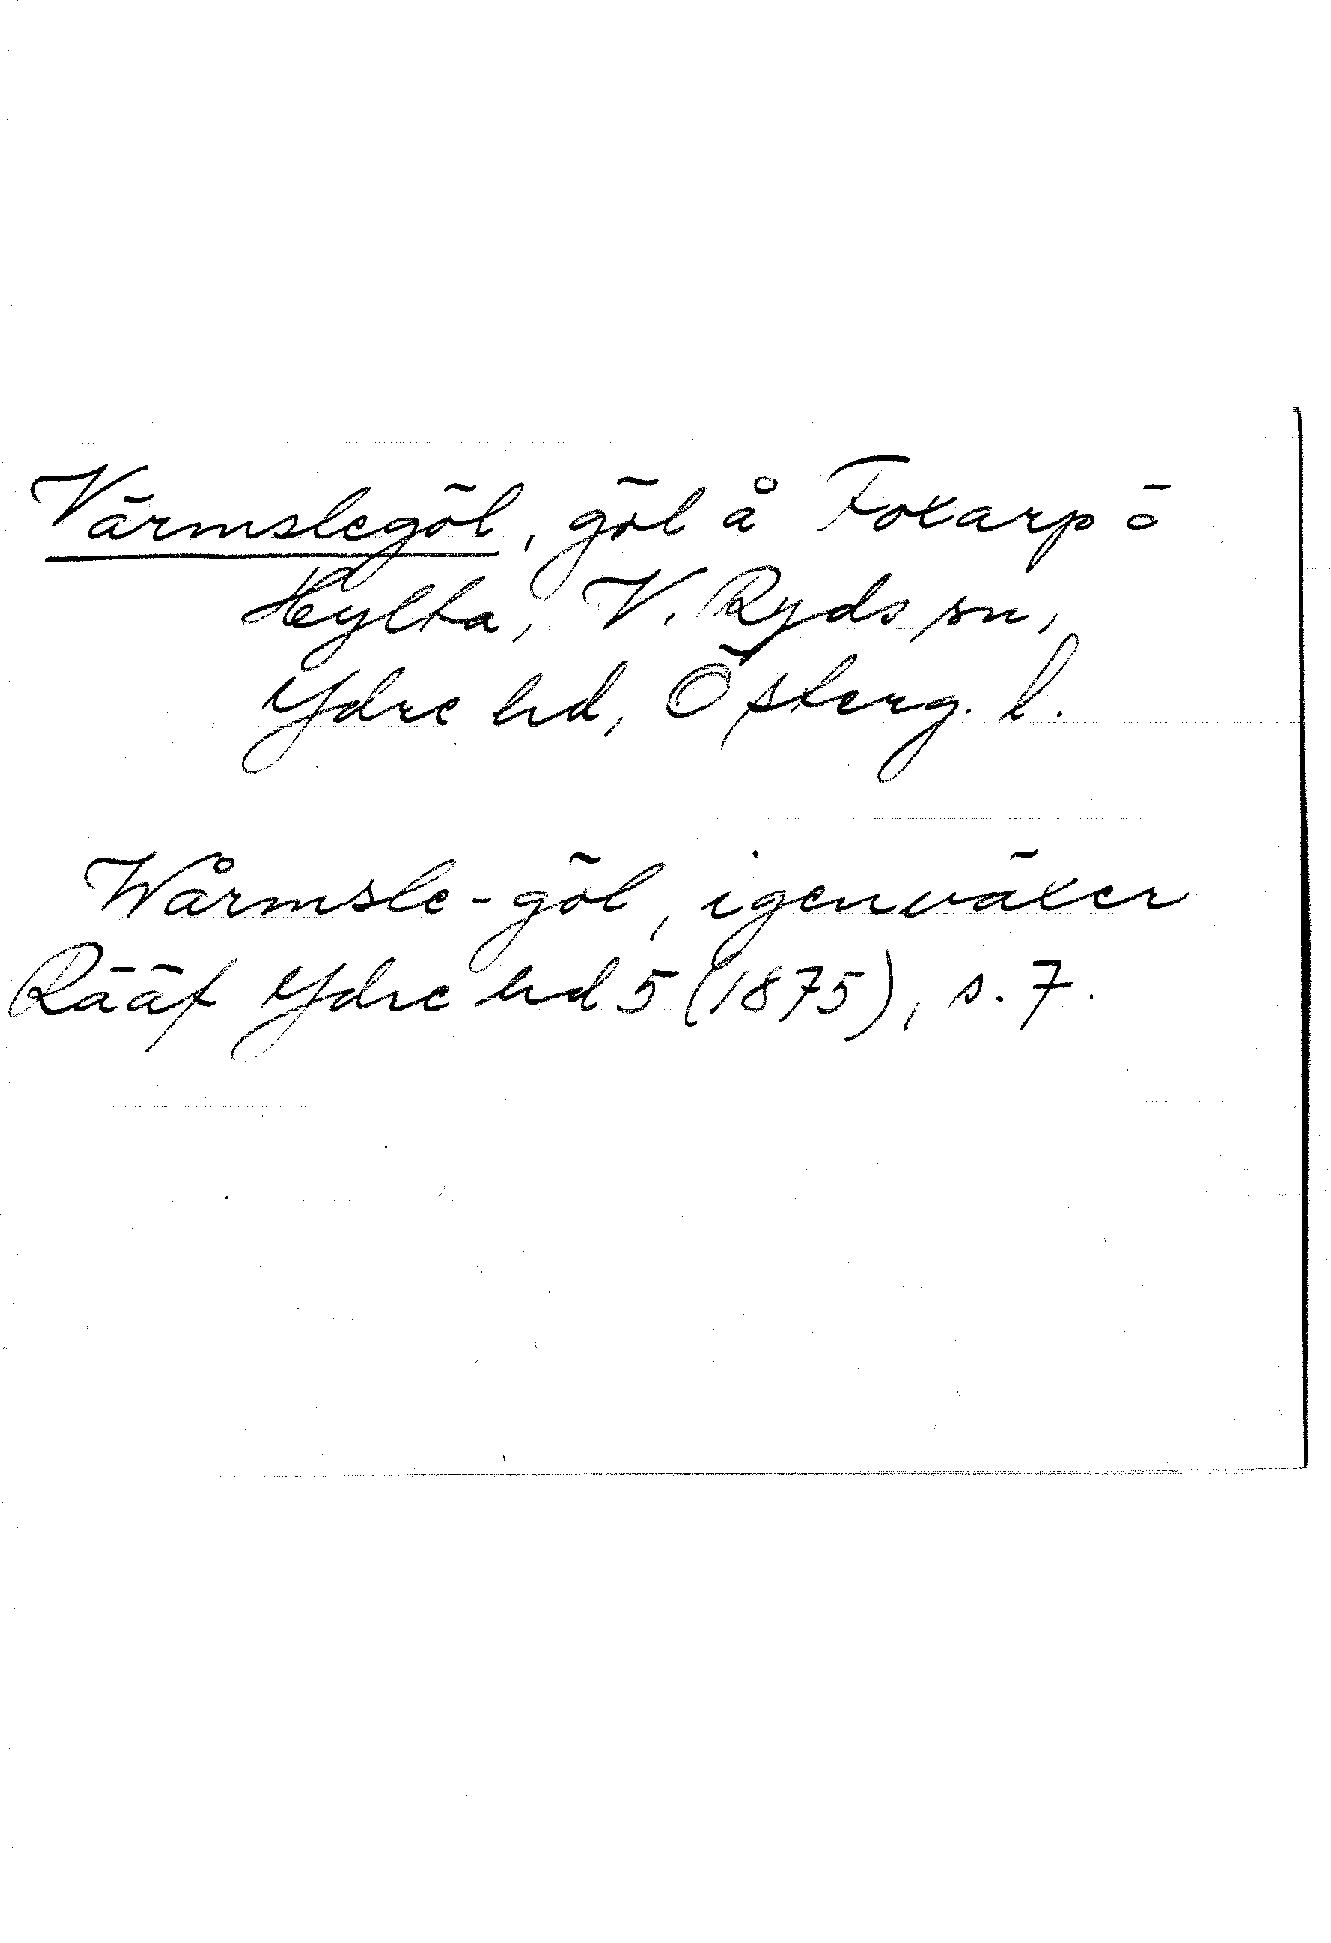 Värmslegöl, göl å Foxarp ö
Hylta, V. Ryds sn,
Ydre hd, Österg. l.
Wårmsle-göl, igenväxer
Rääf Ydre hd 5 (1875), s. 7.